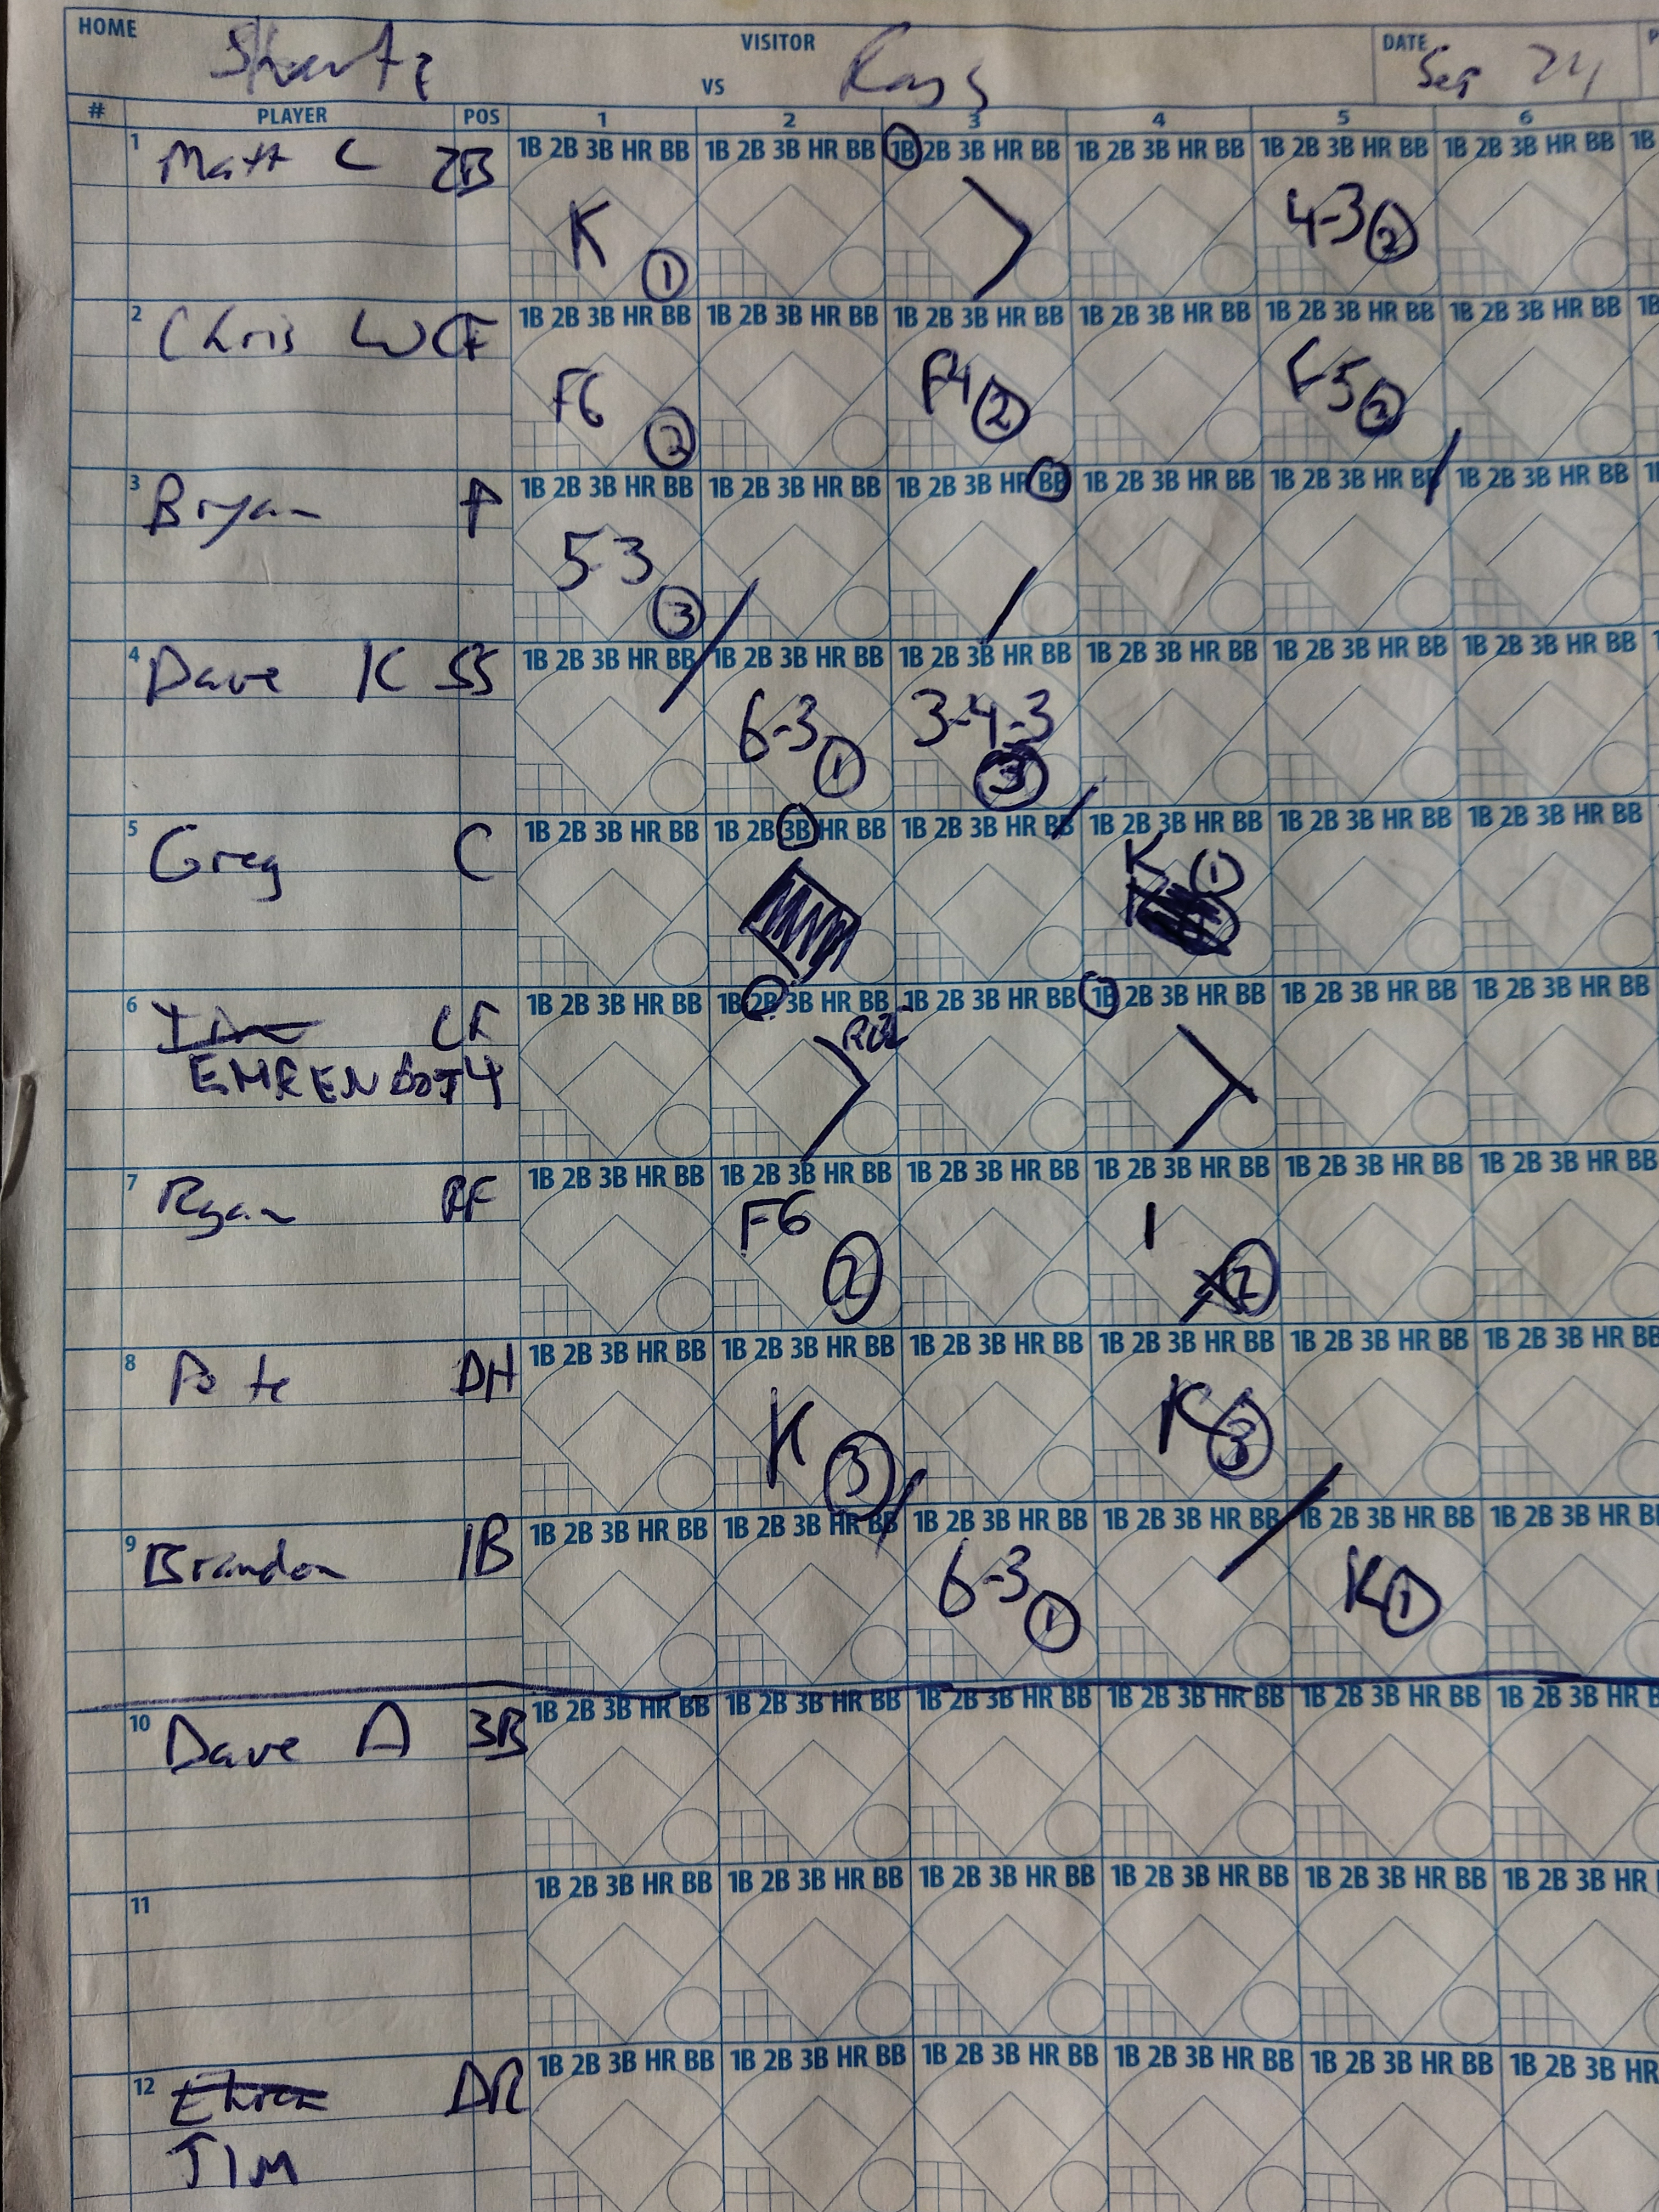 HOME VISITOR DATE
VS Sep 24
# PLAYER POS 1 2 3 4 5 6
1 Matt C 2B 1B 2B 3B HR BB 1B 2B 3B HR BB 1B 2B 3B HR BB 1B 2B 3B HR BB 1B 2B 3B HR BB 1B 2B 3B HR BB 1B
K 1 4-3 2
2 Chris W CF 1B 2B 3B HR BB 1B 2B 3B HR BB 1B 2B 3B HR BB 1B 2B 3B HR BB 1B 2B 3B HR BB 1B 2B 3B HR BB 1B
F6 2 F4 2 F5
3 Bryan P 1B 2B 3B HR BB 1B 2B 3B HR BB 1B 2B 3B HR BB 1B 2B 3B HR BB 1B 2B 3B HR BB 1B 2B 3B HR BB
5-3 3
4 Dave K SS 1B 2B 3B HR BB 1B 2B 3B HR BB 1B 2B 3B HR BB 1B 2B 3B HR BB 1B 2B 3B HR BB 1B 2B 3B HR BB
6-3 1 3-4-3 3
5 Greg C 1B 2B 3B HR BB 1B 2B 3B HR BB 1B 2B 3B HR BB 1B 2B 3B HR BB 1B 2B 3B HR BB 1B 2B 3B HR BB
K 1
6 1B 2B 3B HR BB 1B 2B 3B HR BB 1B 2B 3B HR BB 1B 2B 3B HR BB 1B 2B 3B HR BB 1B 2B 3B HR BB
7 Ryan RF 1B 2B 3B HR BB 1B 2B 3B HR BB 1B 2B 3B HR BB 1B 2B 3B HR BB 1B 2B 3B HR BB 1B 2B 3B HR BB
F6 2 1 2
8 Pete DH 1B 2B 3B HR BB 1B 2B 3B HR BB 1B 2B 3B HR BB 1B 2B 3B HR BB 1B 2B 3B HR BB 1B 2B 3B HR BB
K 3 K 3
9 Brandon 1B 1B 2B 3B HR BB 1B 2B 3B HR BB 1B 2B 3B HR BB 1B 2B 3B HR BB 1B 2B 3B HR BB 1B 2B 3B HR
6-3 1 K 1
10 Dave A 3B 1B 2B 3B HR BB 1B 2B 3B HR BB 1B 2B 3B HR BB 1B 2B 3B HR BB 1B 2B 3B HR BB 1B 2B 3B HR
11 1B 2B 3B HR BB 1B 2B 3B HR BB 1B 2B 3B HR BB 1B 2B 3B HR BB 1B 2B 3B HR BB 1B 2B 3B HR
12 1B 2B 3B HR BB 1B 2B 3B HR BB 1B 2B 3B HR BB 1B 2B 3B HR BB 1B 2B 3B HR BB 1B 2B 3B HR
JIM